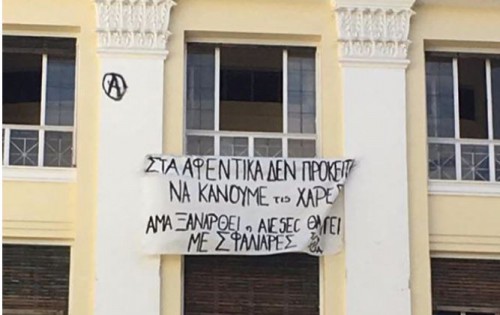 Α
ΣΤΑ ΑΦΕΝΤΙΚΑ ΔΕΝ ΠΡΟΚΕΙΤ
ΝΑ ΚΑΝΟΥΜΕ τις ΧΑΡΕΣ
ΑΜΑ ΞΑΝΑΡΘΕΙ η AIESEC ΘΑ ΒΓΕΙ
ΜΕ ΣΦΑΛΙΑΡΕΣ